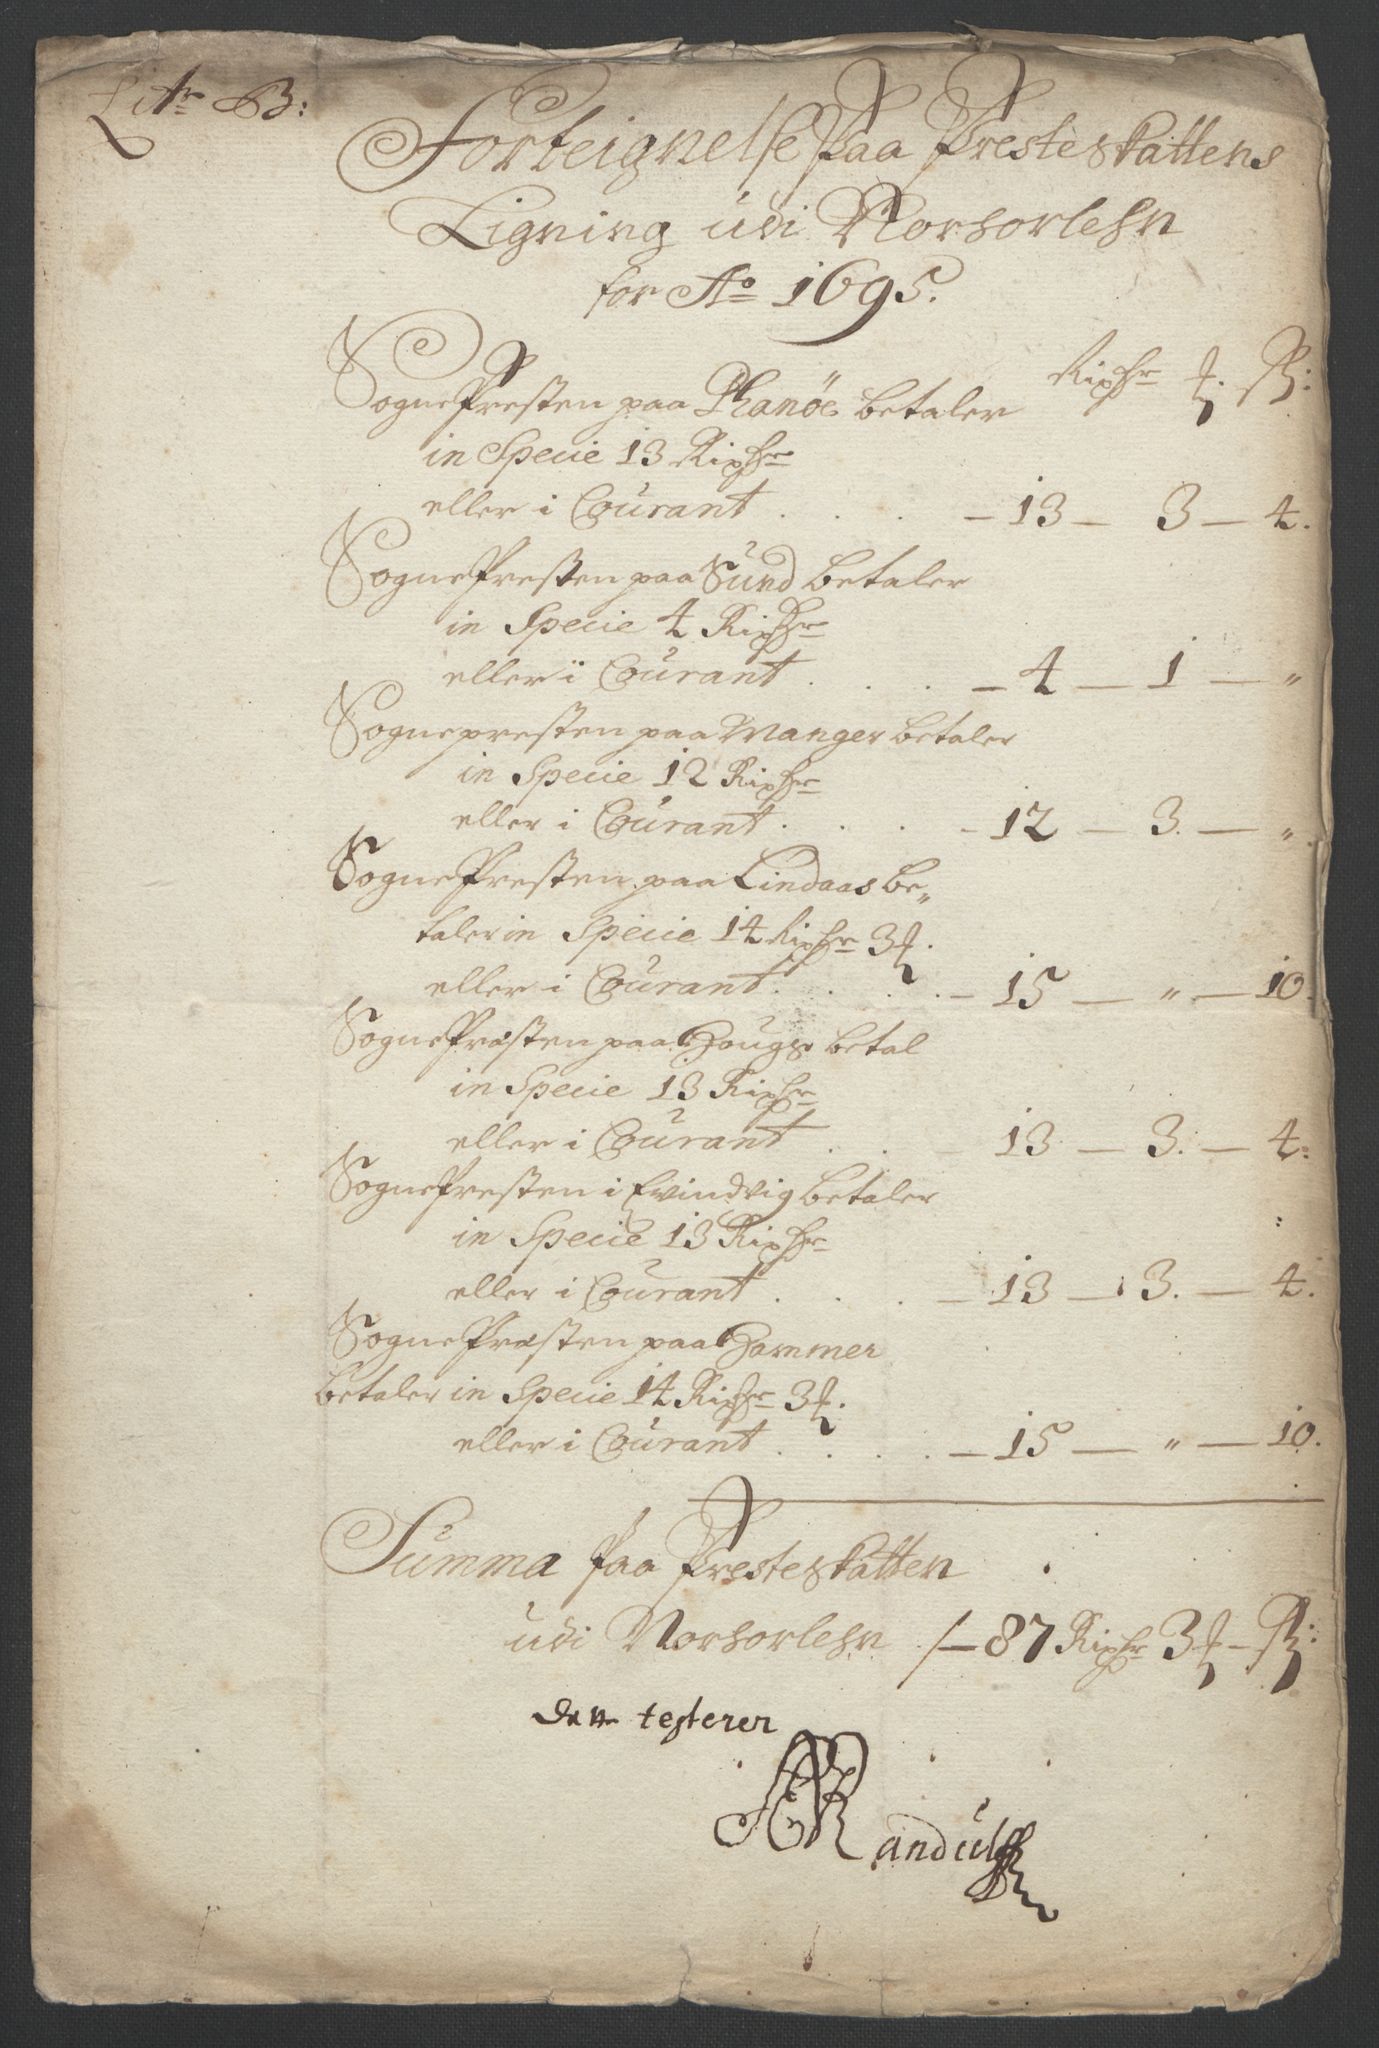 Litr B:
Forteignelse Paa Presteskattens
Ligning udi Norhorlehn
for Ao 1695.
Rixdr ʒ. ß:
SognePresten paa Phanöe betaler
in Specie 13 Rixdr
eller i Courant . . . — 13 — 3 — 4.
SognePresten paa Sund betaler
in Specie 4 Rixdr
eller i Courant . . . — 4 — 1 — "
Sognepresten paa Manger betaler
in Specie 12 Rixdr
eller i Courant . . . — 12 — 3. — ".
SognePresten paa Lindaas be„
taler in Specie 14 Rixdr 3 ʒ.
eller i Courant . . . . — 15 — " — 10.
SognePræsten paa Hougs betal
in Specie 13 Rixdr
eller i Courant . . — 13 — 3. — 4.
SognePresten i Evindvig betaler
in Specie 13 Rixdr
eller i Courant . . . — 13 — 3. — 4.
SognePræsten paa Hammer
betaler in Specie 14 Rixdr 3 ʒ.
eller i Courant . . . . — 15 — " — 10.
Summa paa Presteskatten
udi Norhorlehn /— 87 Rixdr 3 ʒ — ß:
testerer
Randulff